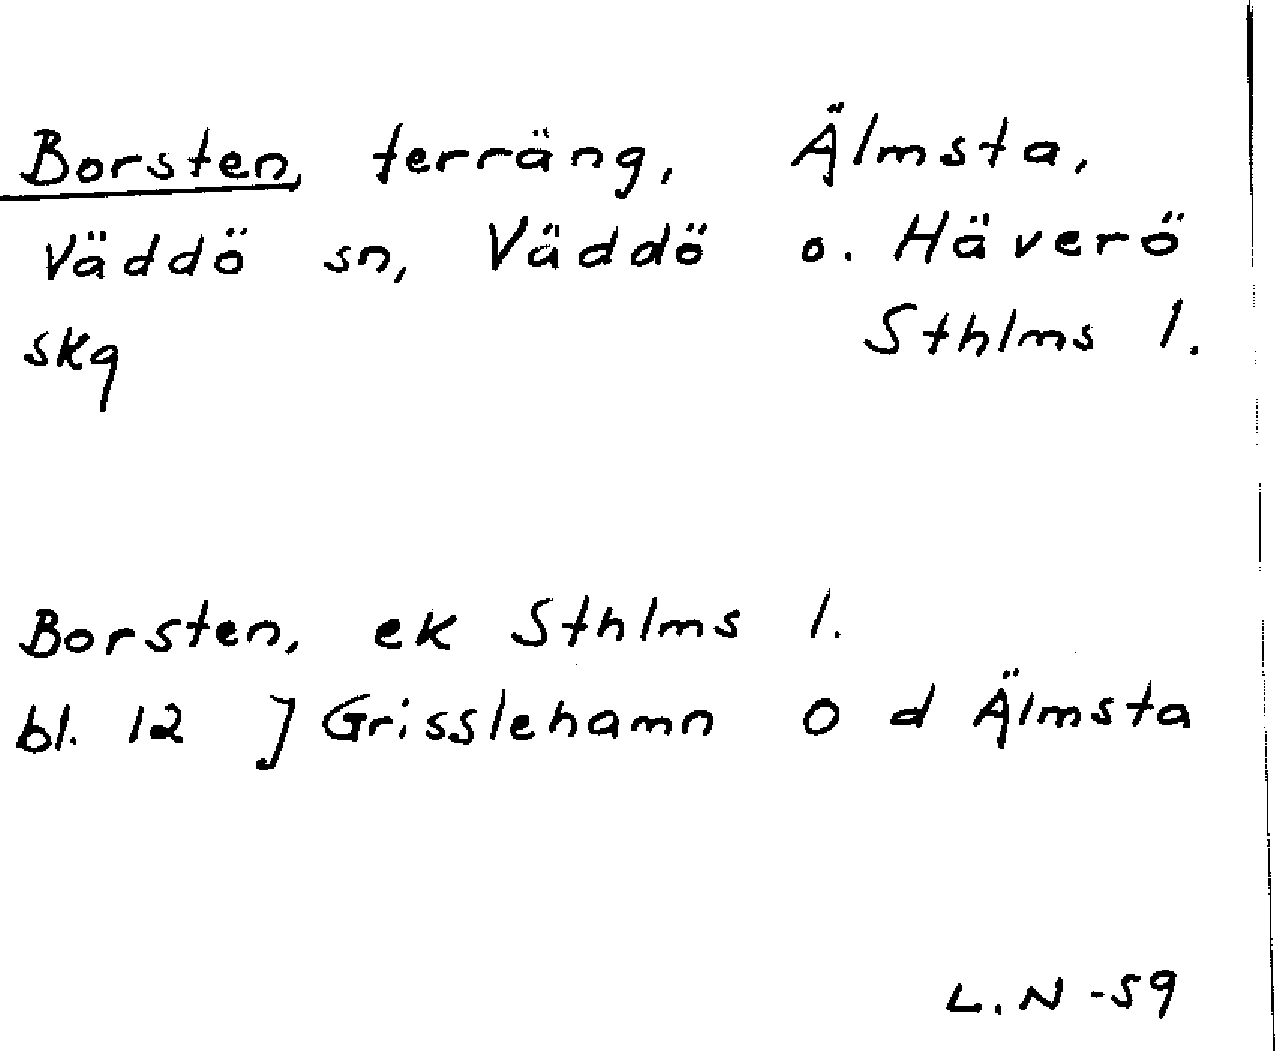 Borsten, terräng, Älmsta,
Väddö sn, Väddö o. Häverö
skg Sthlms l.
Borsten, ek Sthlms l.
bl. 12 J Grisslehamn O d Älmsta
L. N -59